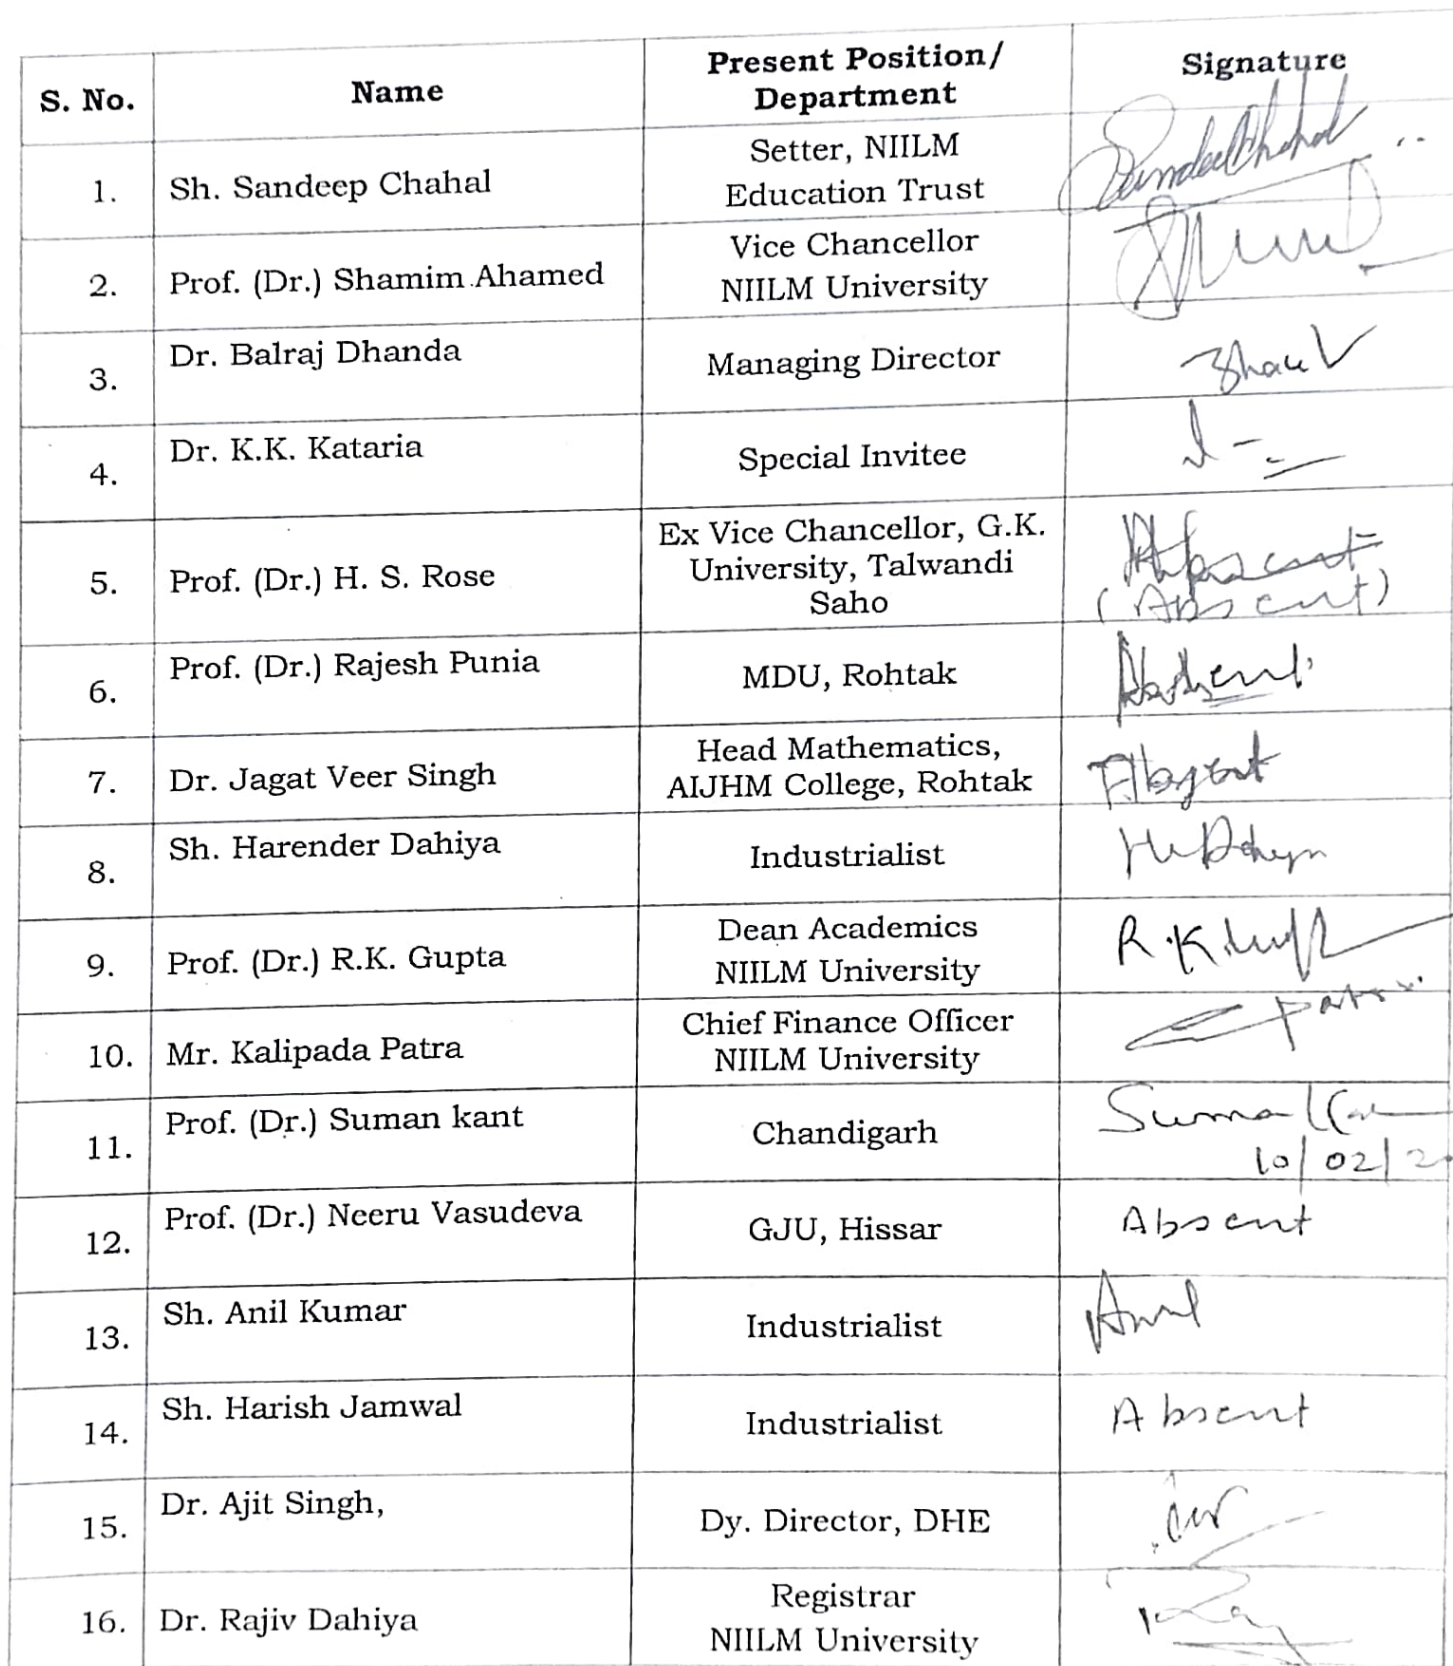 S. No.
Name
Present Position/
Department
Signature
1.
Sh. Sandeep Chahal
Setter, NIILM
Education Trust
Sandeep Chahal
2.
Prof. (Dr.) Shamim Ahamed
Vice Chancellor
NIILM University
3.
Dr. Balraj Dhanda
Managing Director
4.
Dr. K.K. Kataria
Special Invitee
5.
Prof. (Dr.) H. S. Rose
Ex Vice Chancellor, G.K.
University, Talwandi
Saho
Absent
(Absent)
6.
Prof. (Dr.) Rajesh Punia
MDU, Rohtak
Absent
7.
Dr. Jagat Veer Singh
Head Mathematics,
AIJHM College, Rohtak
Absent
8.
Sh. Harender Dahiya
Industrialist
9.
Prof. (Dr.) R.K. Gupta
Dean Academics
NIILM University
R.K. Gupta
10.
Mr. Kalipada Patra
Chief Finance Officer
NIILM University
Patra
11.
Prof. (Dr.) Suman kant
Chandigarh
10/02/2
12.
Prof. (Dr.) Neeru Vasudeva
GJU, Hissar
Absent
13.
Sh. Anil Kumar
Industrialist
Anil
14.
Sh. Harish Jamwal
Industrialist
Absent
15.
Dr. Ajit Singh,
Dy. Director, DHE
16.
Dr. Rajiv Dahiya
Registrar
NIILM University